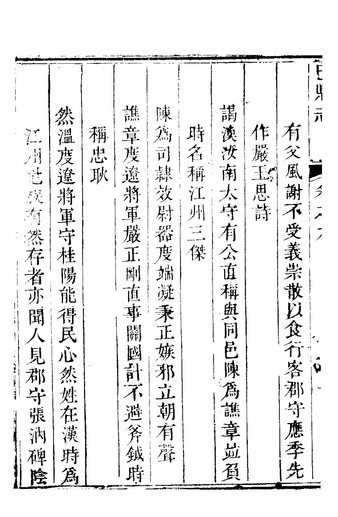 有父風謝不受義崇散以食行客郡守應季先
作嚴王思詩
謁渙汝南太守有公直稱與同邑陳為譙章並負
時名稱江州三傑
陳為司隸效尉器度端凝秉正嫉邪立朝有聲
譙章度遼將軍嚴正剛直事關國計不避斧鉞時
稱忠耿
然溫度遼將軍守桂陽能得民心然姓在漢時為
江州世族有然存者亦聞人見郡守張汭碑陰